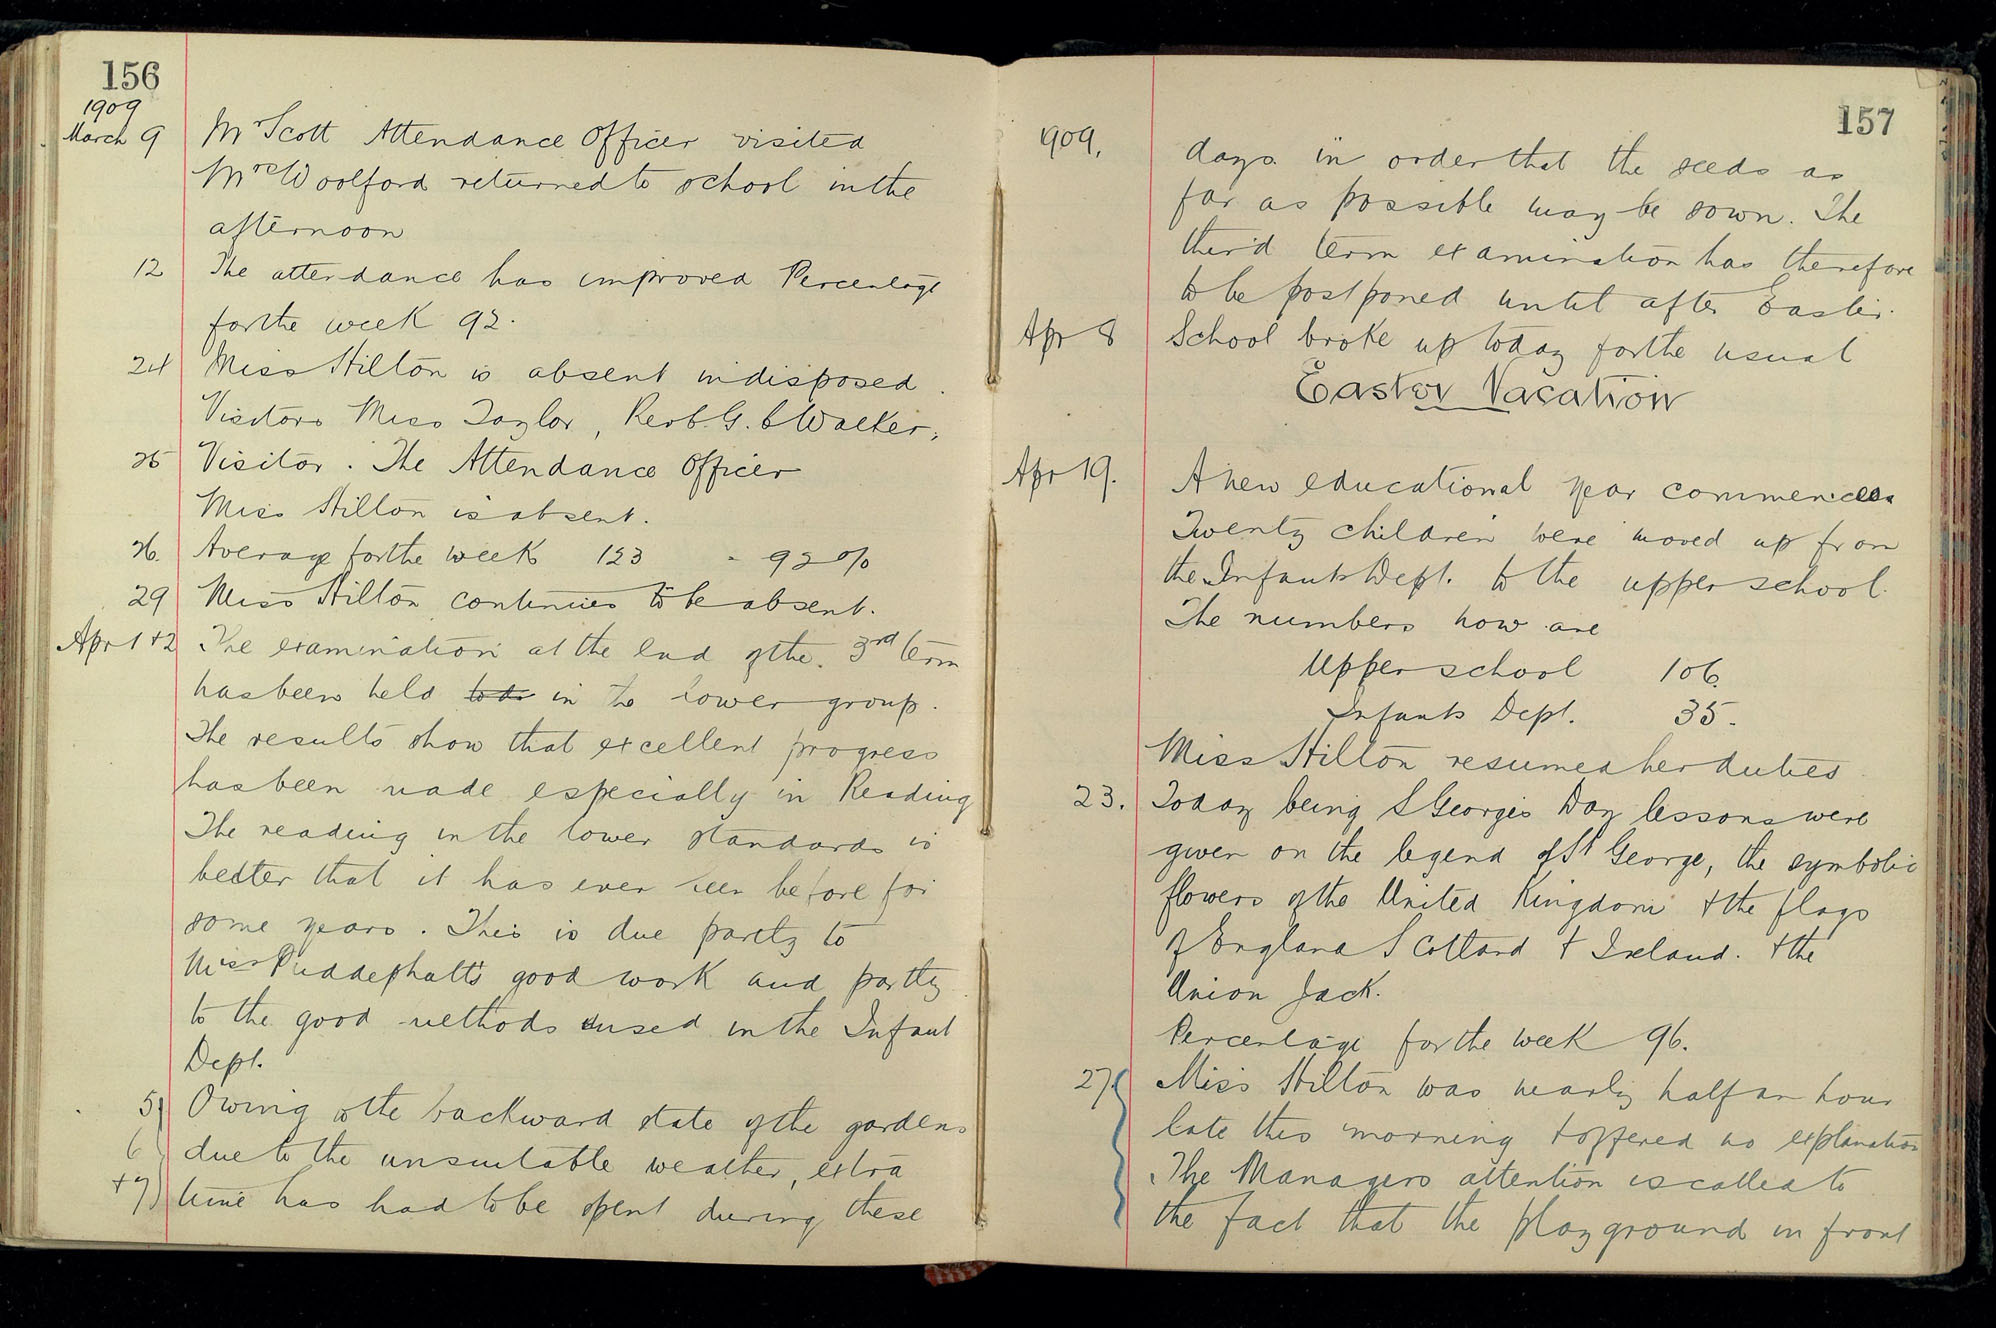 156
1909
March 9 Mr Scott Attendance Officer visited
Mrs Woolford returned to school in the
afternoon
12 The attendance has improved Percentage
for the week 92.
24 Miss Hilton is absent indisposed.
Visitors Miss Taylor, G. C Walker,
25 Visitor. The Attendance Officer
Miss Hilton is absent.
26. Average for the week 123 - 92%
29 Miss Hilton continues to be absent.
Apr 1 + 2 The examination at the end of the 3rd term
has been held to do in the lower group.
The results show that excellent progress
has been made especially in Reading
The reading in the lower standards is
better that it has ever been before for
some years. This is due partly to
Miss Puddephatt's good work and partly
to the good methods used in the Infant
Dept.
5 Owing to the backward state of the gardens
6 due to the unsuitable weather, extra
+7 time has had to be spent during these
157
1909, days in order that the seeds as
far as possible may be sown. The
third term examination has therefore
to be postponed until after Easter.
Apr 8 School broke up today for the usual
Easter Vacation
Apr 19. A new educational year commences
Twenty children were moved up from
the Infants Dept. to the upper school.
The numbers now are
Upper school 106.
Infants Dept. 35.
Miss Hilton resumed her duties
23. Today being S George's Day lessons were
given on the legend of St George, the symbolic
flowers of the United Kingdom + the flags
of England Scotland + Ireland. + the
Union Jack.
Percentage for the week 96.
27 Miss Hilton was nearly half an hour
late this morning + offered no explanation
The Managers attention is called to
the fact that the playground in front